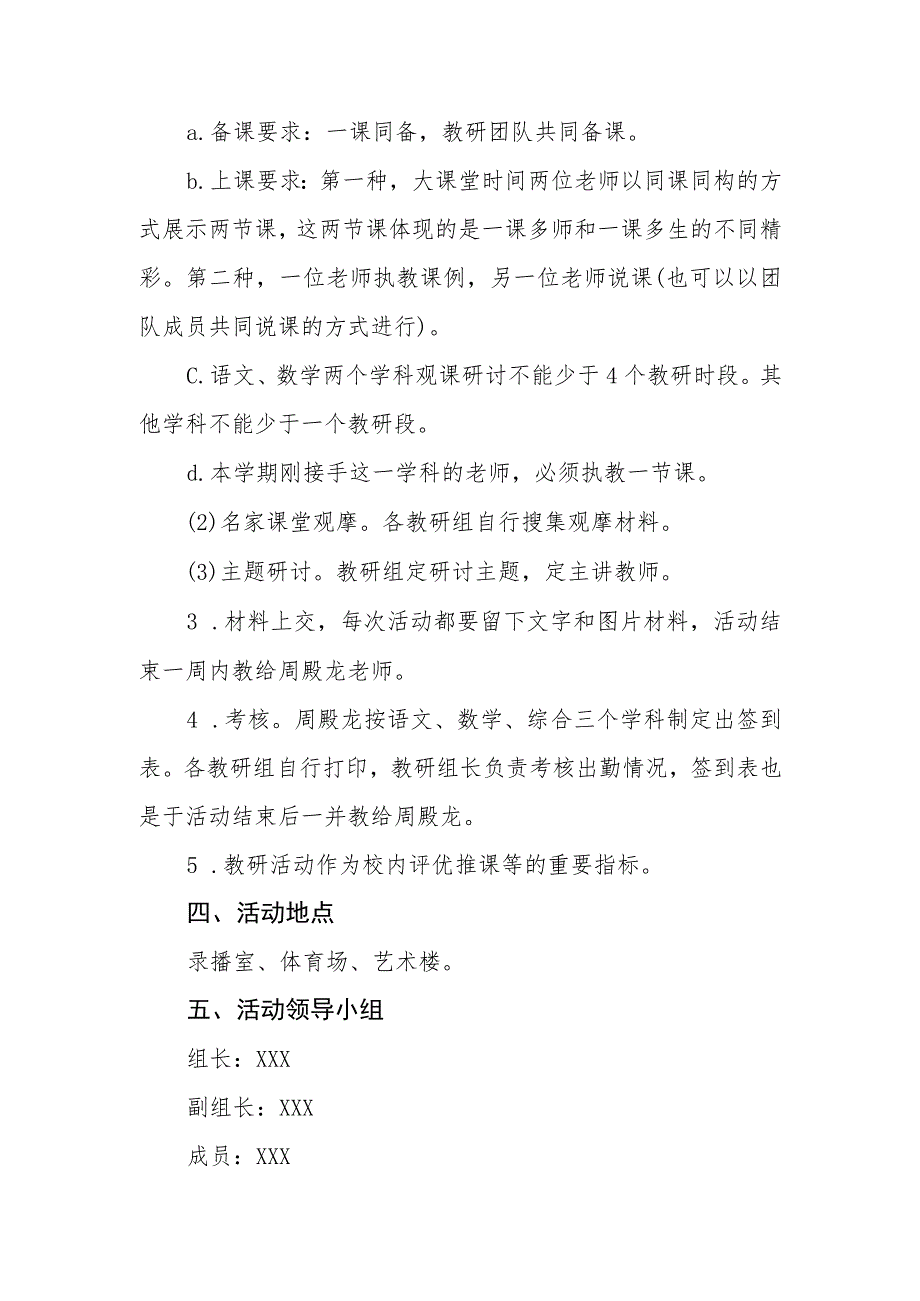 a.备课要求：一课同备，教研团队共同备课。
b.上课要求：第一种，大课堂时间两位老师以同课同构的方
式展示两节课，这两节课体现的是一课多师和一课多生的不同精
彩。第二种，一位老师执教课例，另一位老师说课(也可以以团
队成员共同说课的方式进行)。
C.语文、数学两个学科观课研讨不能少于4个教研时段。其
他学科不能少于一个教研段。
d.本学期刚接手这一学科的老师，必须执教一节课。
(2)名家课堂观摩。各教研组自行搜集观摩材料。
(3)主题研讨。教研组定研讨主题，定主讲教师。
3 .材料上交，每次活动都要留下文字和图片材料，活动结
束一周内教给周殿龙老师。
4 .考核。周殿龙按语文、数学、综合三个学科制定出签到
表。各教研组自行打印，教研组长负责考核出勤情况，签到表也
是于活动结束后一并教给周殿龙。
5 .教研活动作为校内评优推课等的重要指标。
四、活动地点
录播室、体育场、艺术楼。
五、活动领导小组
组长：XXX
副组长：XXX
成员：XXX